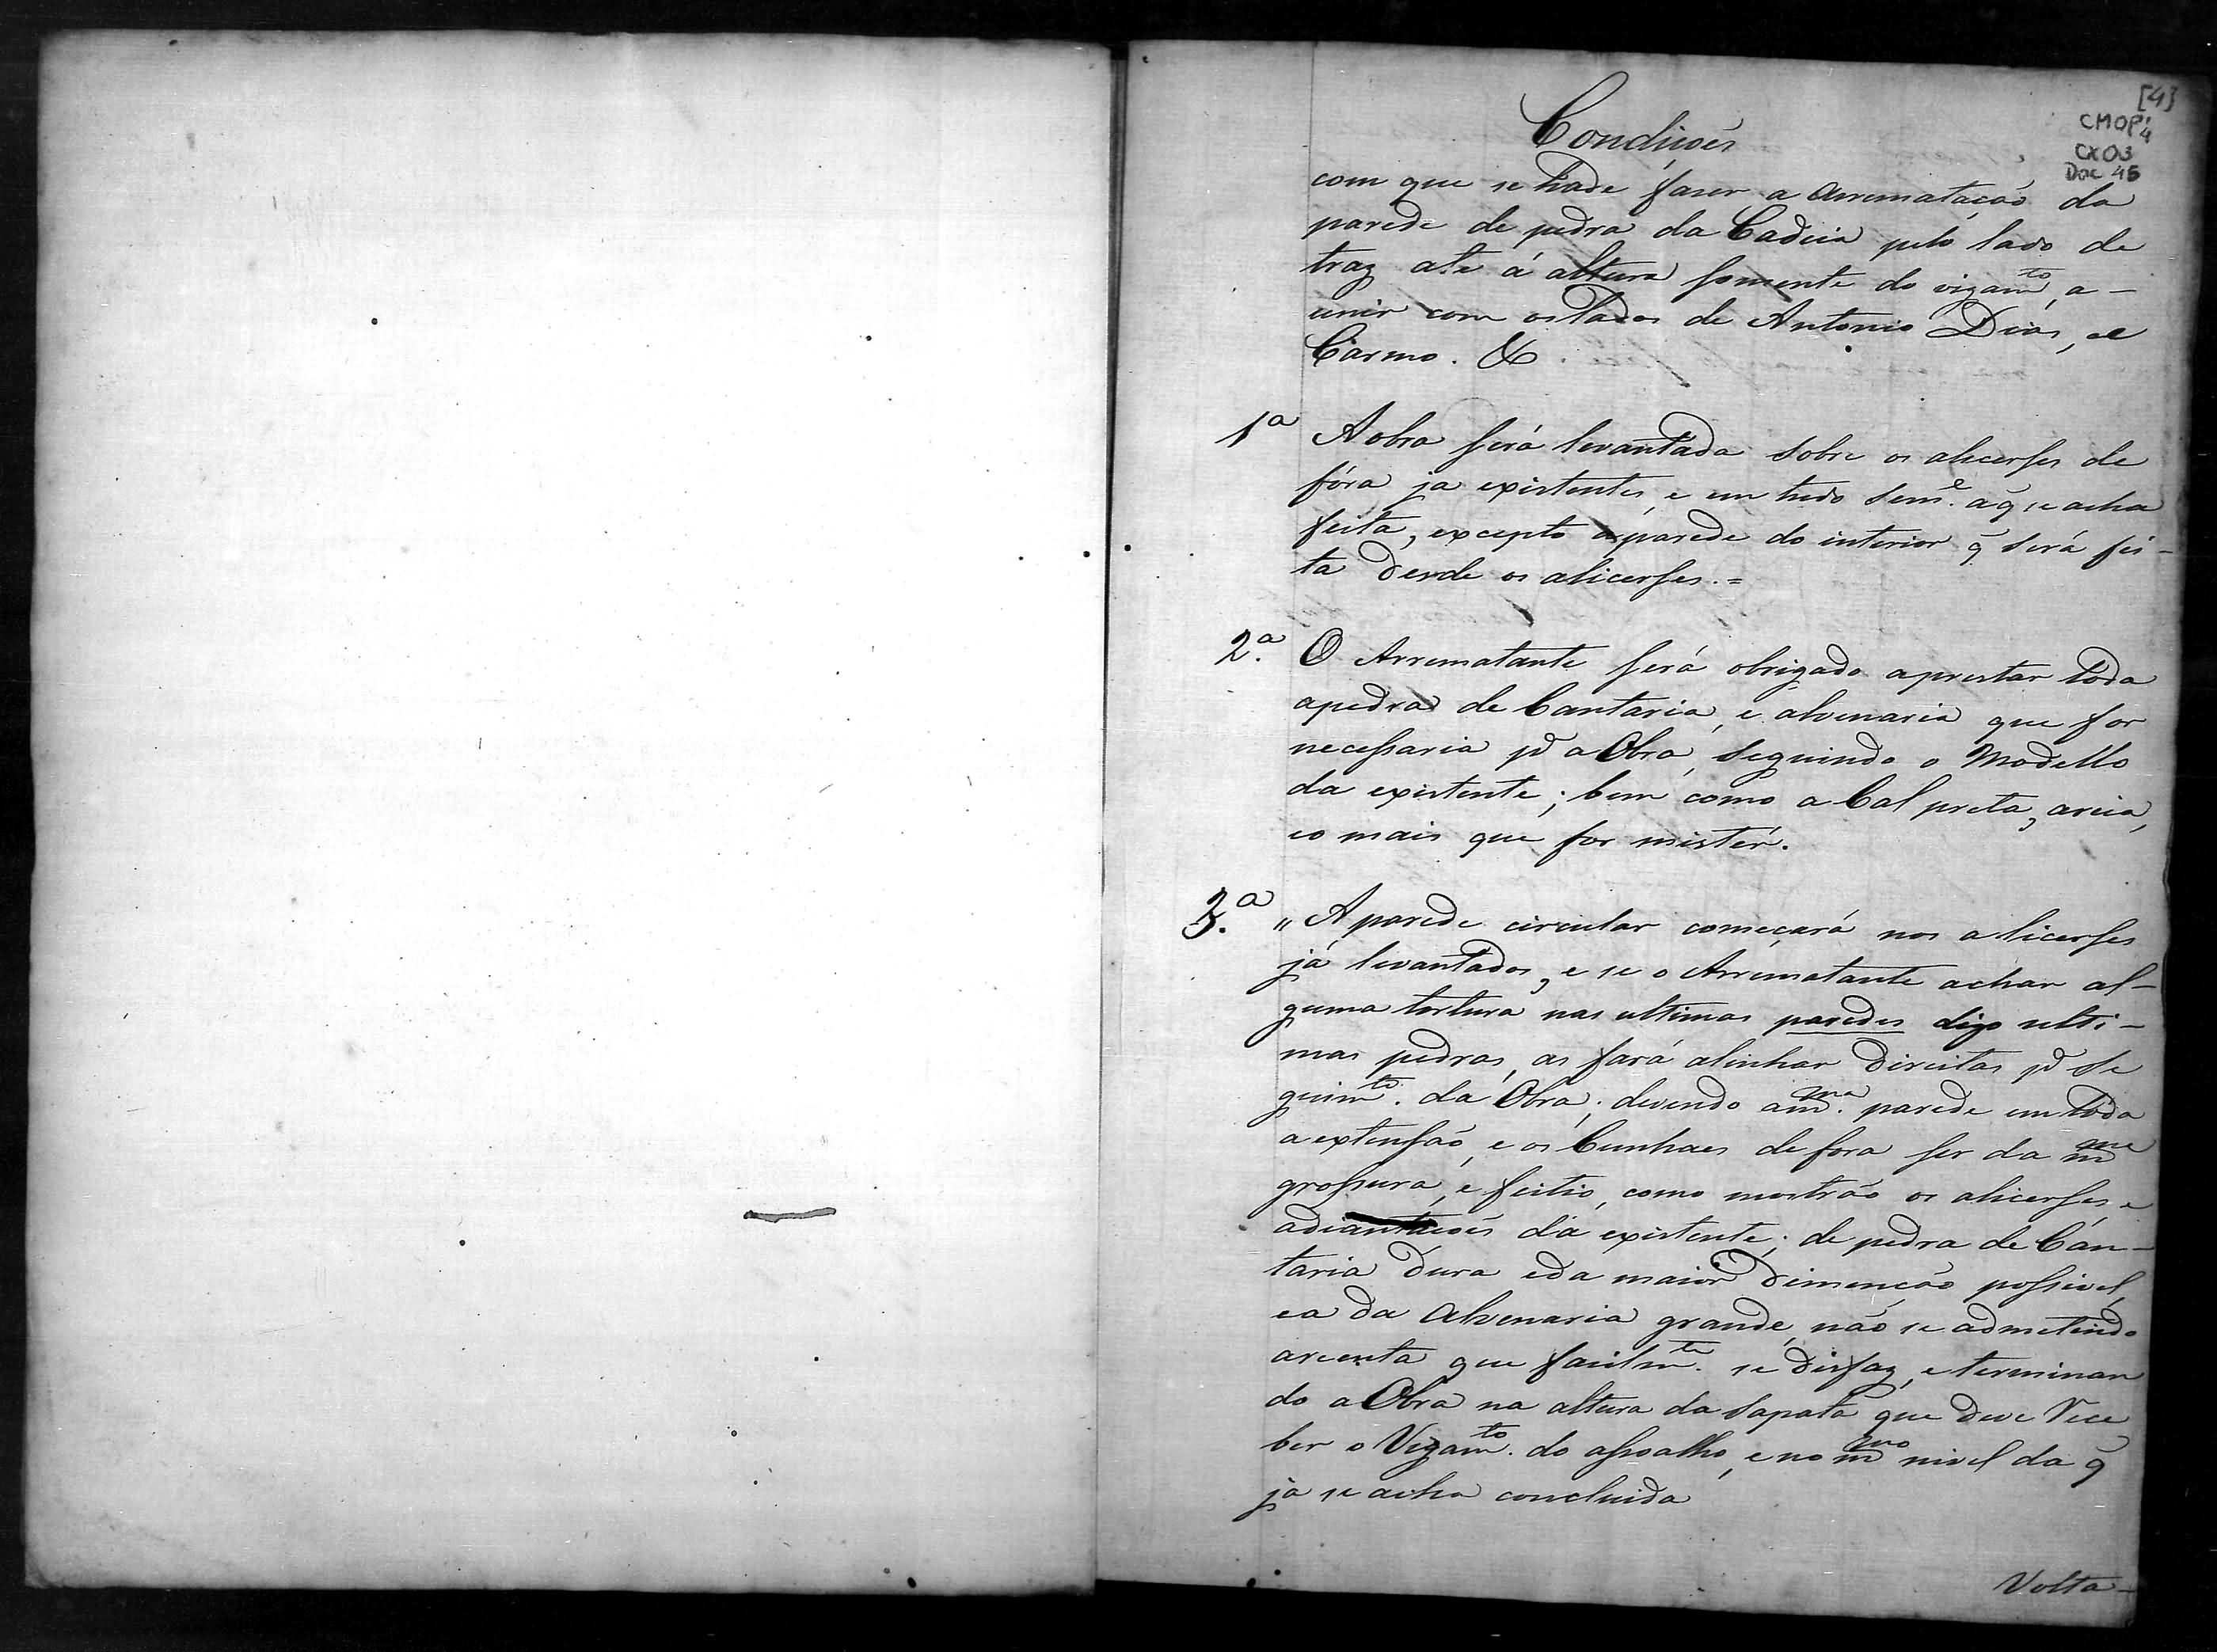 [4]
CMOP 4
CX03
Doc 45
Condiçoẽs
com que se hade faser a arremataçaõ da
parede de pedra da Cadeia pelo lado de
traz ate á altura somente do vigam.to, a-
unir com os lados de Antonio Dias, e
Carmo. &
1ª A obra será levantada sobre os alicerses de
fóra ja existentes, e em tudo sem.e á q̃ se acha
feita, excepto a parede do interior q̃ será fei-
ta desde os alicerses.=
2.ª O Arrematante será obrigado aprestar toda
apedra de Cantaria, e alvenaria que for
necessaria p.ª a Obra, seguindo o Modello
da existente; bem como a Cal preta, areia,
eo mais que for mistér.
3.ª " A parede circular começará nos alicerses
já levantados, e se o Arrematante achar al-
guma tortura nas ultimas paredes digo ulti-
mas pedras, as fará alinhar direitas p.ª se
guim.to da Obra; devendo a m.ma parede em toda
a extensaõ, e os Cunhaes de fora ser da m.ma
grossura, e feitio, como mostrão os alicerses, e
adiantaçoẽs da existente; de pedra de Can-
taria dura eda maior dimenção possivel,
ea da Alvenaria grande, não se admetindo
areenta que facilm.te se disfaz, e terminan
do a Obra na altura da Sapata que deve rece
ber o Vigam.to do assoalho, e no m.mo nivel da q̃
ja se acha concluida
Volta-